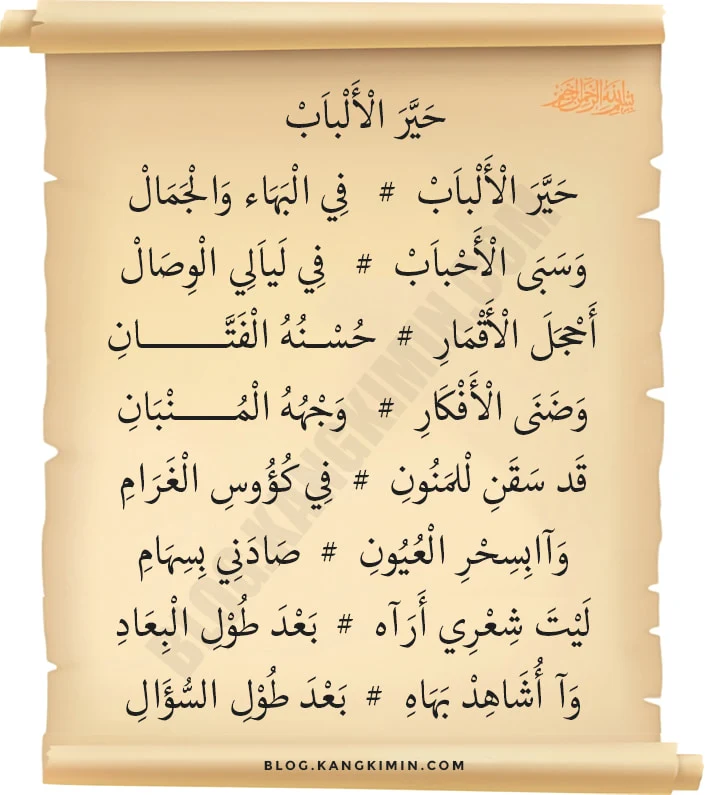 بسم الله الرحمن الرحيم
حَيَّرَ الْأَلْباَبْ
حَيَّرَ الْأَلْباَبْ # فِي الْبَهَاء وَالْجَمَالْ
وَسَبَى الْأَحْباَبْ # فِي لَياَلِي الْوِصَالْ
أَحْجَلَ الْأَقْمَارِ # حُسْـنُهُ الْفَتَّـــــــانِ
وَضَنَى الْأَفْكَارِ # وَجْهُهُ الْمُـــــنْبَانِ
قَد سَقَنِ لْلمَنُونِ # فِي كُؤُوسِ الْغَرَامِ
وَآابِسِحْرِ الْعُيُونِ # صَادَنِي بِسِهَامِ
لَيْتَ شِعْرِي أَرَآه # بَعْدَ طُوْلِ الْبِعَادِ
وَآ أُشَاهِدْ بَهَاهِ # بَعْدَ طُوْلِ السُّؤَالِ
BLOG.KANGKIMIN.COM
BLOG.KANGKIMIN.COM